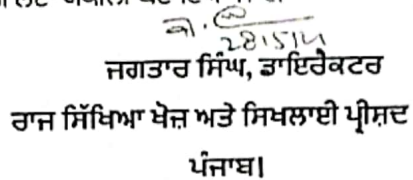 28/5/14
ਜਗਤਾਰ ਸਿੰਘ, ਡਾਇਰੈਕਟਰ
ਰਾਜ ਸਿੱਖਿਆ ਖੋਜ਼ ਅਤੇ ਸਿਖਲਾਈ ਪ੍ਰੀਸ਼ਦ
ਪੰਜਾਬ।